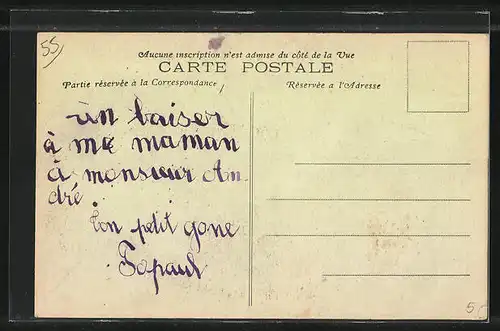 55
Aucune inscription n'est admise du côté de la Vue
CARTE POSTALE
Partie réservée à la Correspondance
Réservée a l'Adresse
un baiser
à me maman
à monsieur An
dré.
ton petit gone
Popaul
5